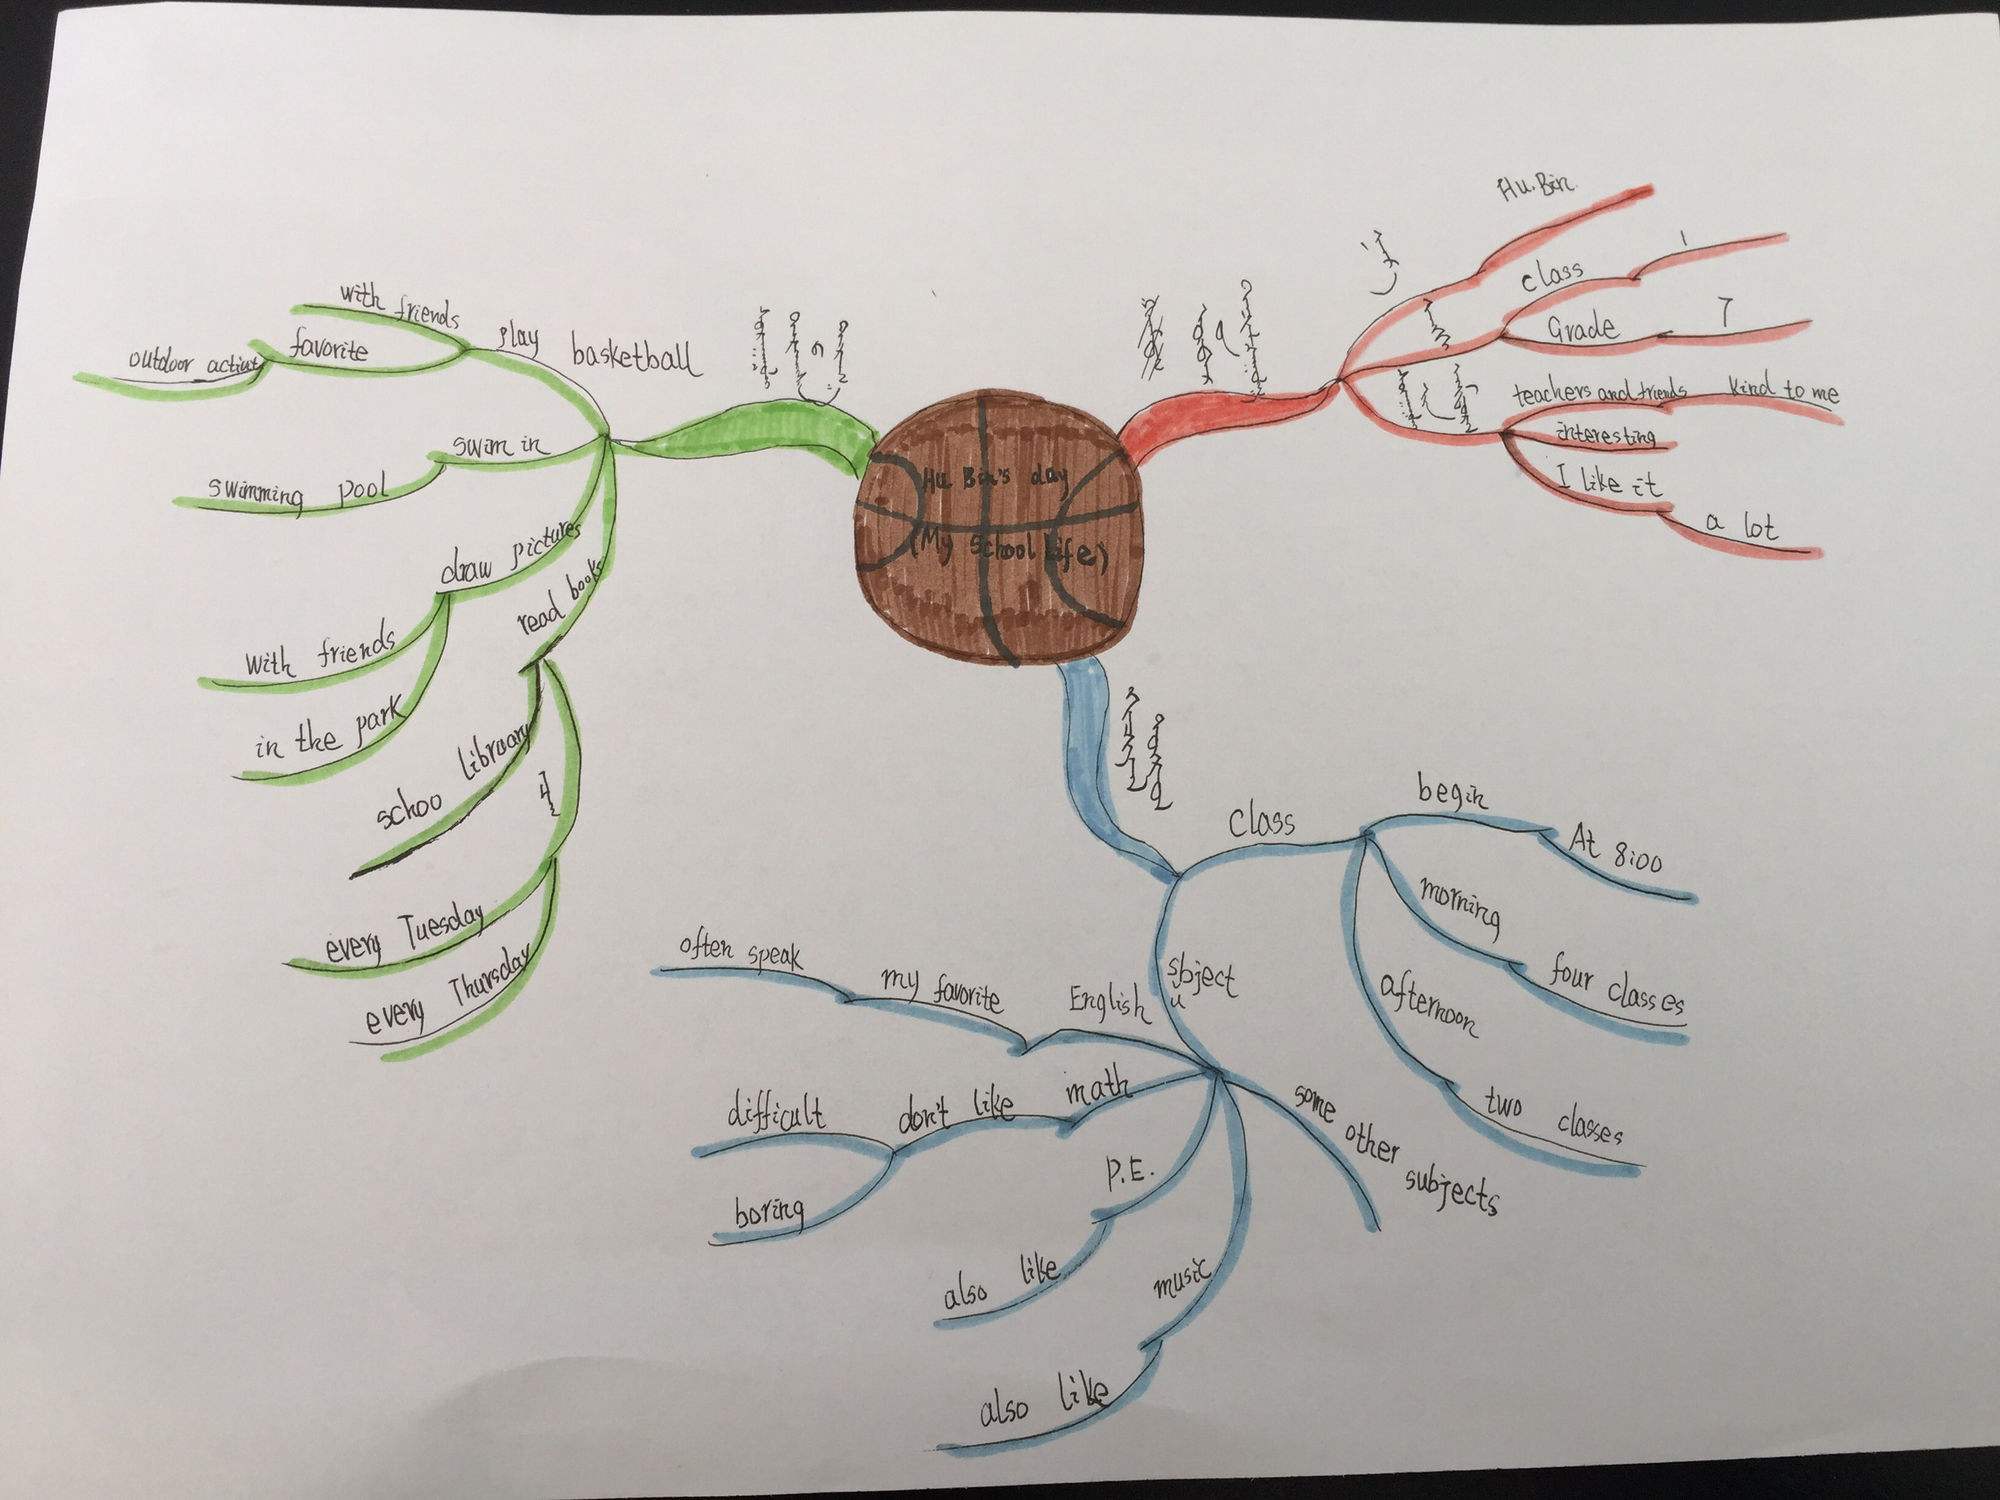 Hu Bin's day
(My school life)
Hu Bin
class
1
Grade
7
teachers and friends
kind to me
interesting
I like it
a lot
class
begin
At 8:00
morning
four classes
afternoon
two classes
subject
English
my favorite
often speak
math
don't like
difficult
boring
P.E.
also like
music
also like
some other
subjects
play basketball
with friends
favorite
outdoor activt
swim in
swimming pool
draw pictures
with friends
in the park
read books
schoo
every Tuesday
every Thursday